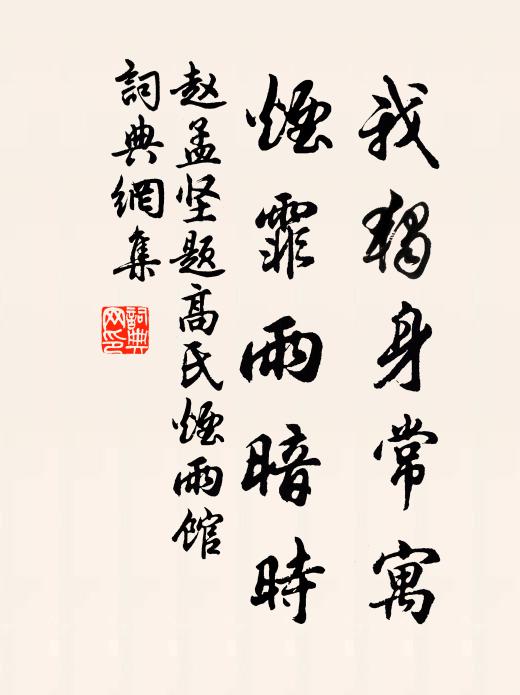 我獨身常寓
煙霏雨暗時
赵孟坚题高氏煙雨馆
詞典網集
詞典网印